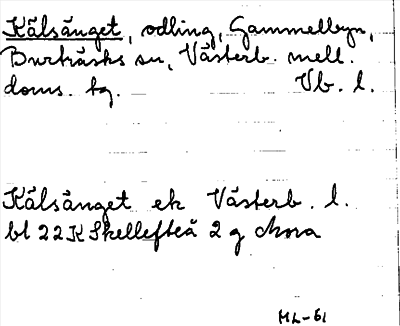 Kälsänget, odling, Gammelbyn,
Burträsks sn, Västerb. mell.
doms. tg. Vb. l.
Kälsänget ek Västerb. l.
bl 22K Skellefteå 2 g
ML-61